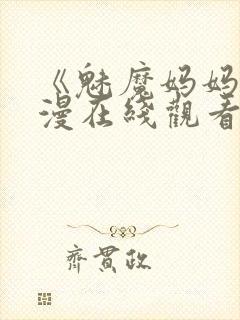 《魅魔妈妈
漫在线观看
齊貫政